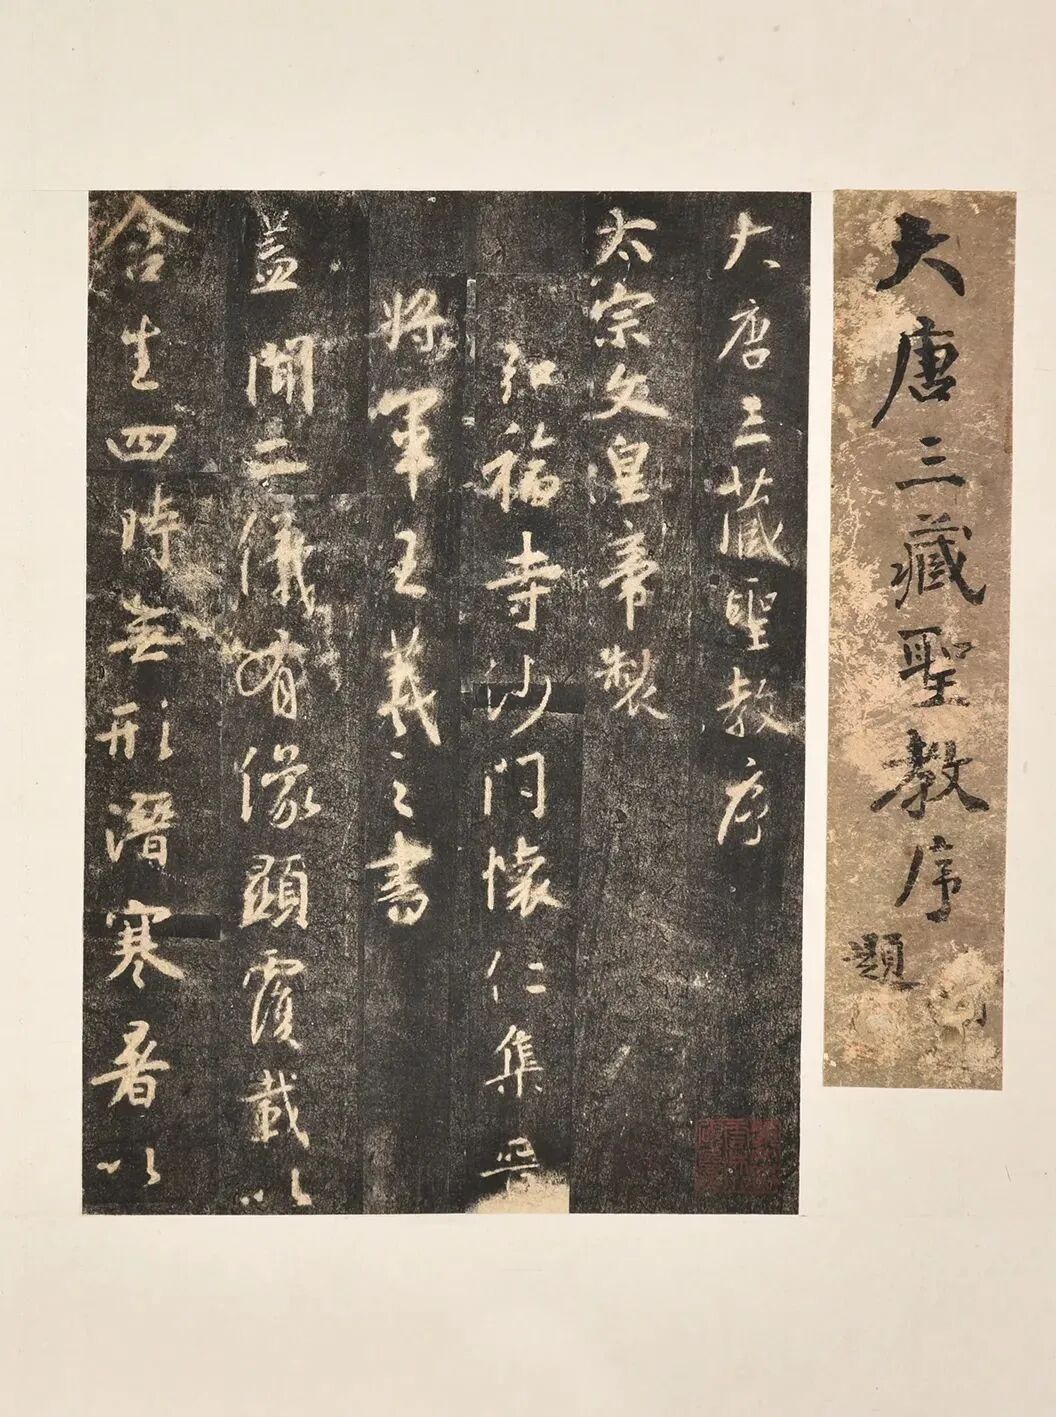 大唐三藏聖教序
題
大唐三藏聖教序
太宗文皇帝製
弘福寺沙門懷仁集晉
將軍王羲之書
蓋聞二儀有像顯覆載以
含生四時無形潛寒暑以